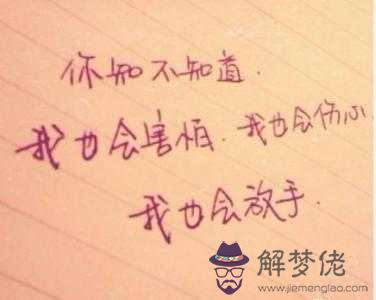 你知不知道.
我也会害怕.我也会伤心.
我也会放手.
解梦佬
www.jiemenglao.com